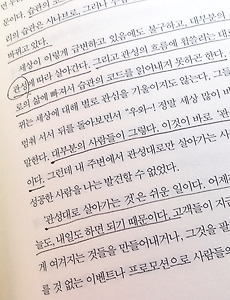 리의 습관은 시나브로, 그러나
바뀌고 있다.
세상이 이렇게 급변하고 있음에도 불구하고, 대부분의
관성에 따라 살아간다. 그리고 관성의 흐름에 휩쓸리는 대
빠져서 습관의 코드를 읽어내지 못하곤 한다.
뀌는 세상에 대해 별로 관심을 기울이지도 않는다. 그들
멈춰 서서 뒤를 돌아보면서 “우와~! 정말 세상 많이 바
말한다. 대부분의 사람들이 그렇다. 이것이 바로 ‘관
이다. 그런데 내 주변에서 관성대로만 살아가는 사
성공한 사람을 나는 발견할 수 없었다.
관성대로 살아가는 것은 쉬운 일이다. 어제
늘도, 내일도 하면 되기 때문이다. 고객들이 지금
게 여겨지는 것들을 만들어내거나, 그것을 관
를 것 없는 이벤트나 프로모션으로 사람들의